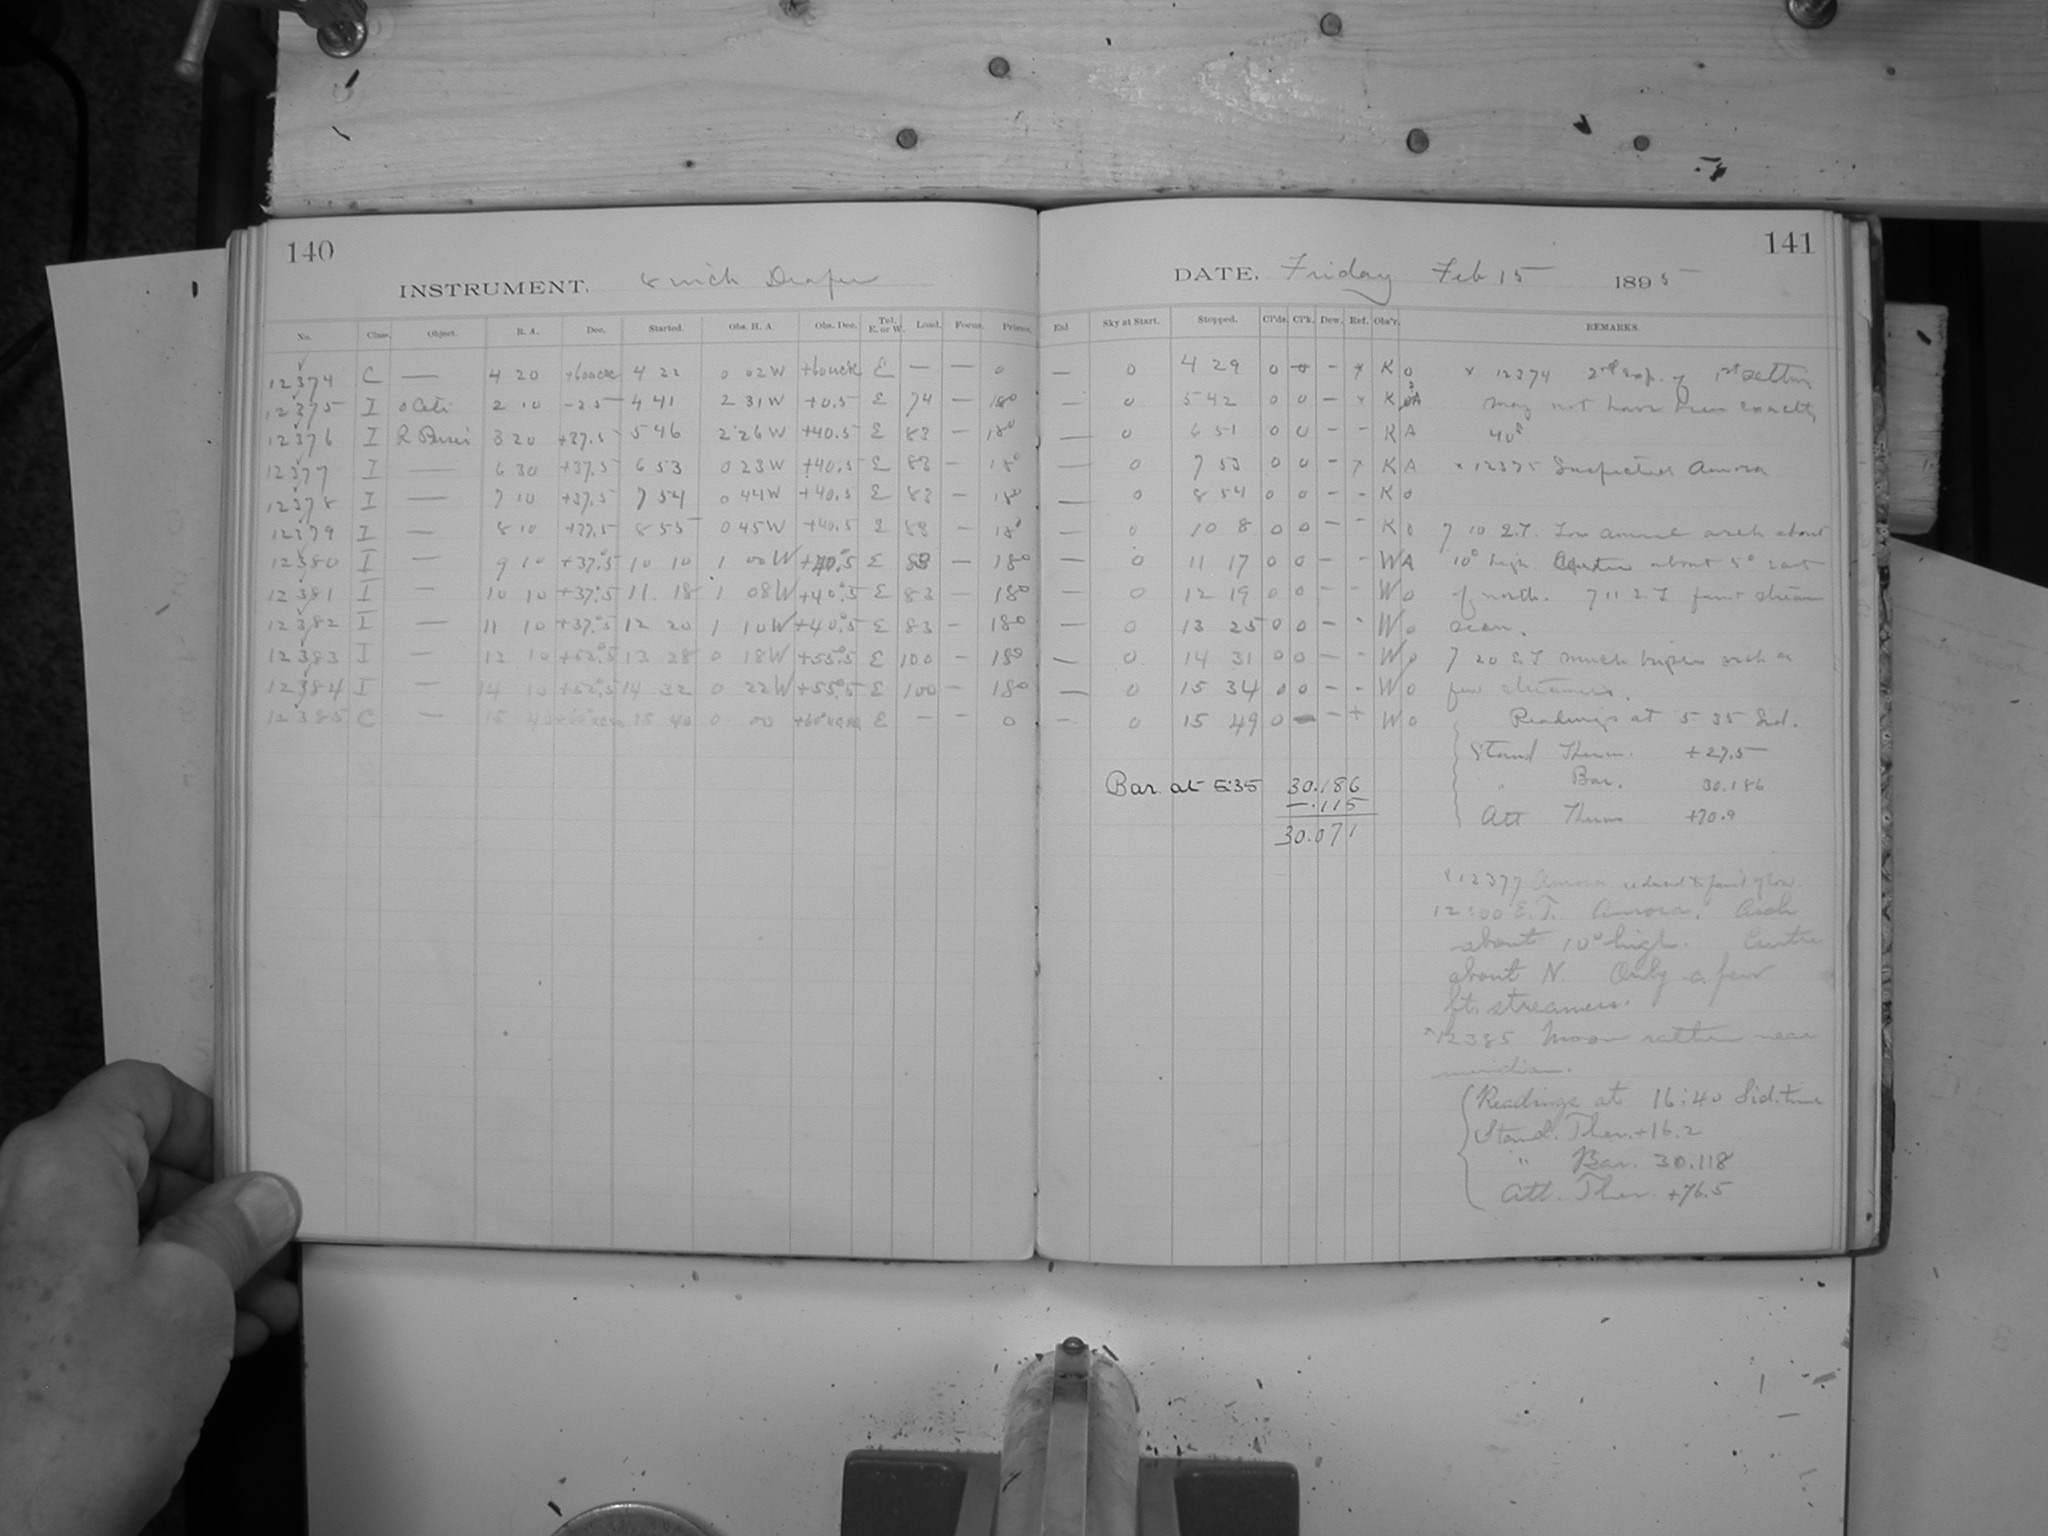 140
INSTRUMENT. 8 inch Draper
No. Class. Object. R. A. Dec. Started. Obs. H. A Obs. Dec. Tel. E. or W. Load. Focus. Prisms.
12374 C — 4 20 4 22 0 02W E — — 0
12375 I o Ceti 2 10 -2.5 4 41 2 31W +0.5 E 74 — 180
12376 I R Persei 3 20 +37.5 5 46 2 26W +40.5 E 83 — 180
12377 I — 6 30 +37.5 6 53 0 23W +40.5 E 83 — 180
12378 I — 7 10 +37.5 7 54 0 44W +40.5 E 83 — 180
12379 I — 8 10 +37.5 8 55 0 45W +40.5 E 83 — 180
12380 I — 9 10 +37°.5 10 10 1 00W +40°.5 E 83 — 180
12381 I — 10 10 +37°.5 11 18 1 08W +40°.5 E 83 — 180
12382 I — 11 10 +37°.5 12 20 1 10W +40°.5 E 83 — 180
12383 I — 13 10 +52°.5 13 28 0 18W +55°.5 E 100 — 180
12384 I — 14 10 +52°.5 14 32 0 22W +55°.5 E 100 — 180
12385 C — 15 40 15 40 0 00 E — — 0
141
DATE, Friday Feb 15 1895
End Sky at Start. Stopped. Cl'ds. Cl'k. Dew. Ref. Obs'r. REMARKS.
— 0 4 29 0 0 – x K o x 12374 2nd exp. of 1st setting
— 0 5 42 0 0 – x K A may not have been exactly
— 0 6 51 0 0 – – K A 40s
— 0 7 53 0 0 – x K A x 12375 Suspected Aurora
— 0 8 54 0 0 – – K o
— 0 10 8 0 0 – – K o 7 10 E.T. Low auroral arch about
— 0 11 17 0 0 – – W A 10° high Centre about 5° east
— 0 12 19 0 0 – – W o of north. 7 11 E.T faint stream
— 0 13 25 0 0 – – W o seen.
— 0 14 31 0 0 – – W o 7 20 E.T much brighter arch a
— 0 15 34 0 0 – – W o few streamers.
— 0 15 49 0 – – + W o Readings at 5 35 Sid.
Stand Therm. +27.5
" Bar. 30.186
Att Therm +70.9
Bar. at 5:35 30.186
—.115
30.071
x 12377 Aurora reduced to faint glow
12:00 E.T. Aurora. Arch
about 10° high. Centre
about N. Only a few
ft. streamers.
x 12385 Moon rather near
meridian.
Readings at 16:40 Sid. time
Stand. Ther. +16.2
" Bar. 30.118
Att. Ther. +76.5